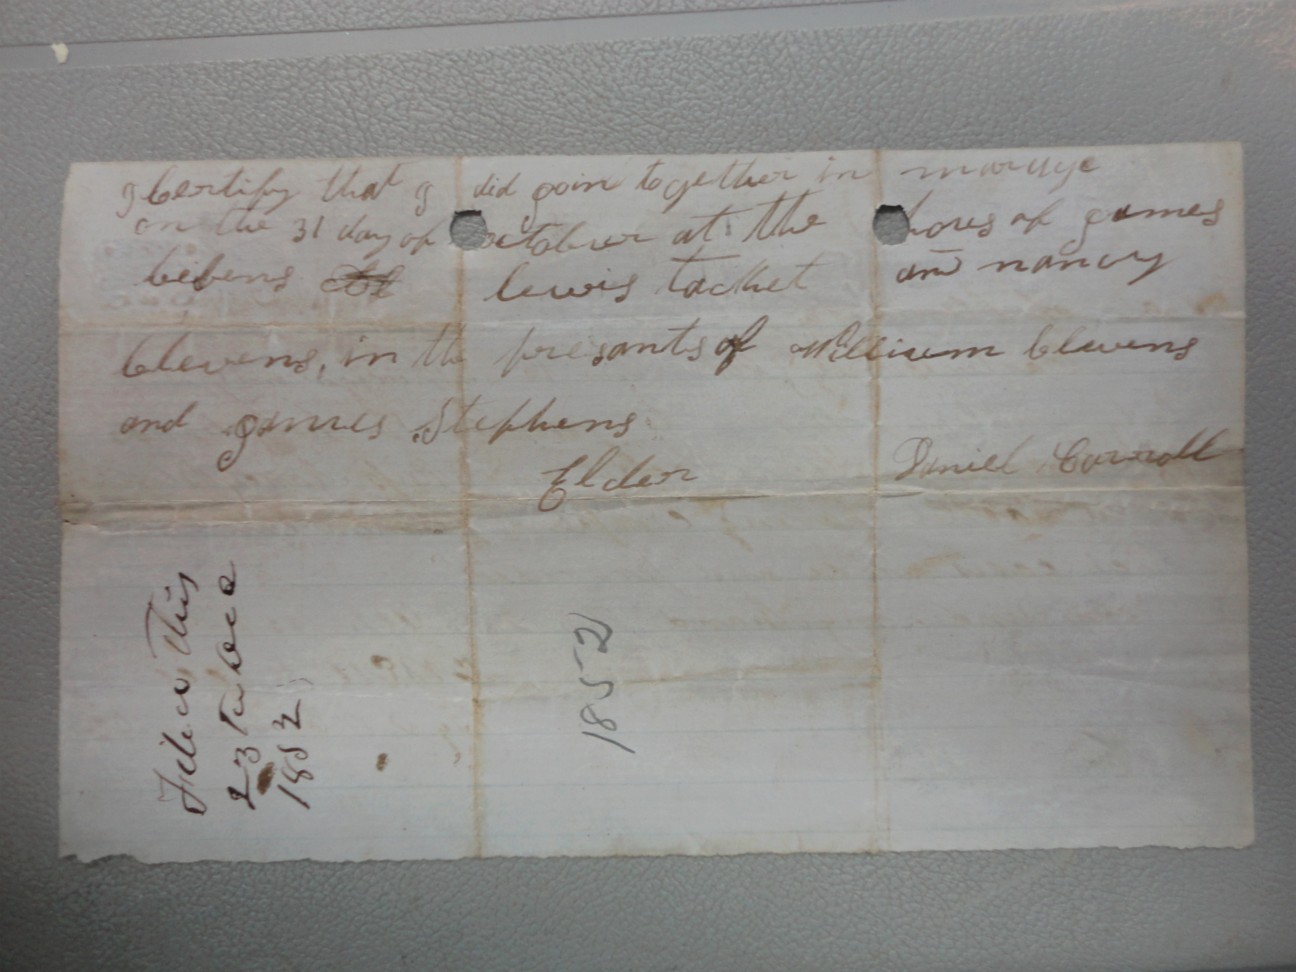 I Certify that I did goin together in marage
on the 31 day of october at the hous of games
blevens lewis tacket and nancy
blevens, in the presants of William blevens
and games Stephens
Elder Daniel Carroll
Filed This
23 Dece
1852
1852